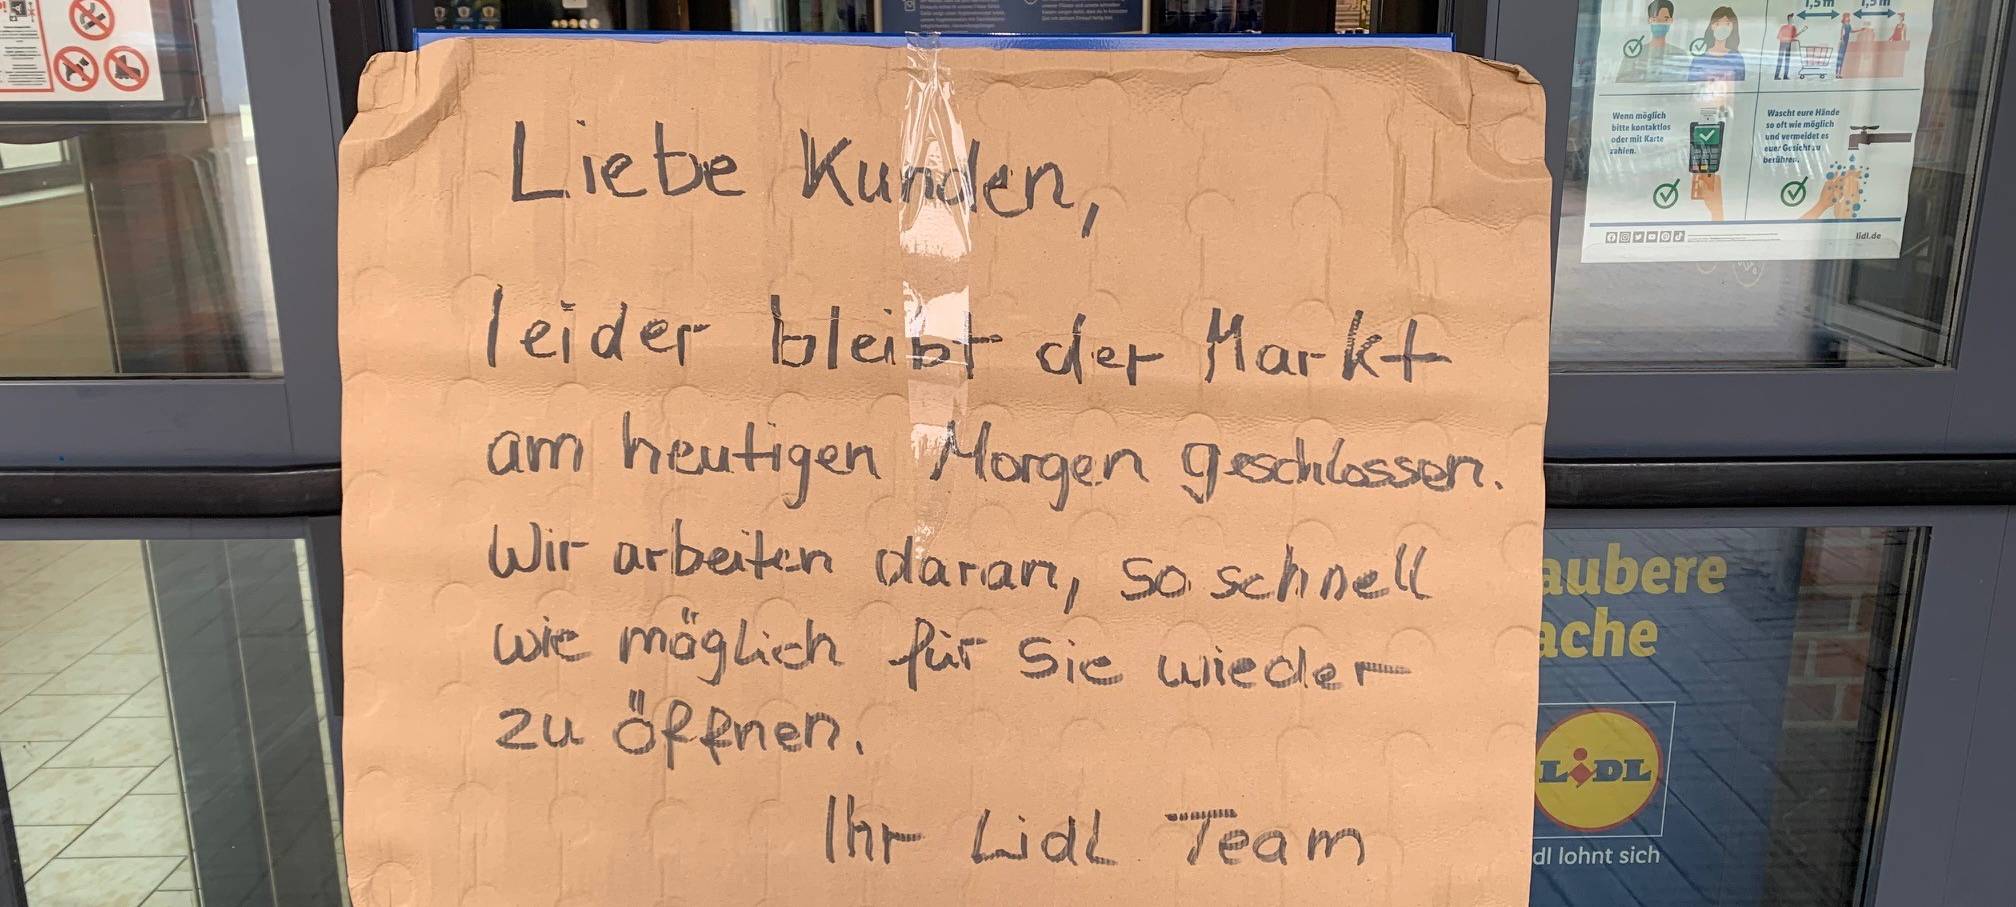 Liebe Kunden,
leider bleibt der Markt
am heutigen Morgen geschlossen.
Wir arbeiten daran, so schnell
wie möglich für Sie wieder
zu öffnen.
Ihr Lidl Team
1,5 m 1,5 m
Wenn möglich
bitte kontaktlos
oder mit Karte
zahlen.
Wascht eure Hände
so oft wie möglich
und vermeidet es
euer Gesicht zu
berühren.
lidl.de
aubere
ache
LiDL
dl lohnt sich